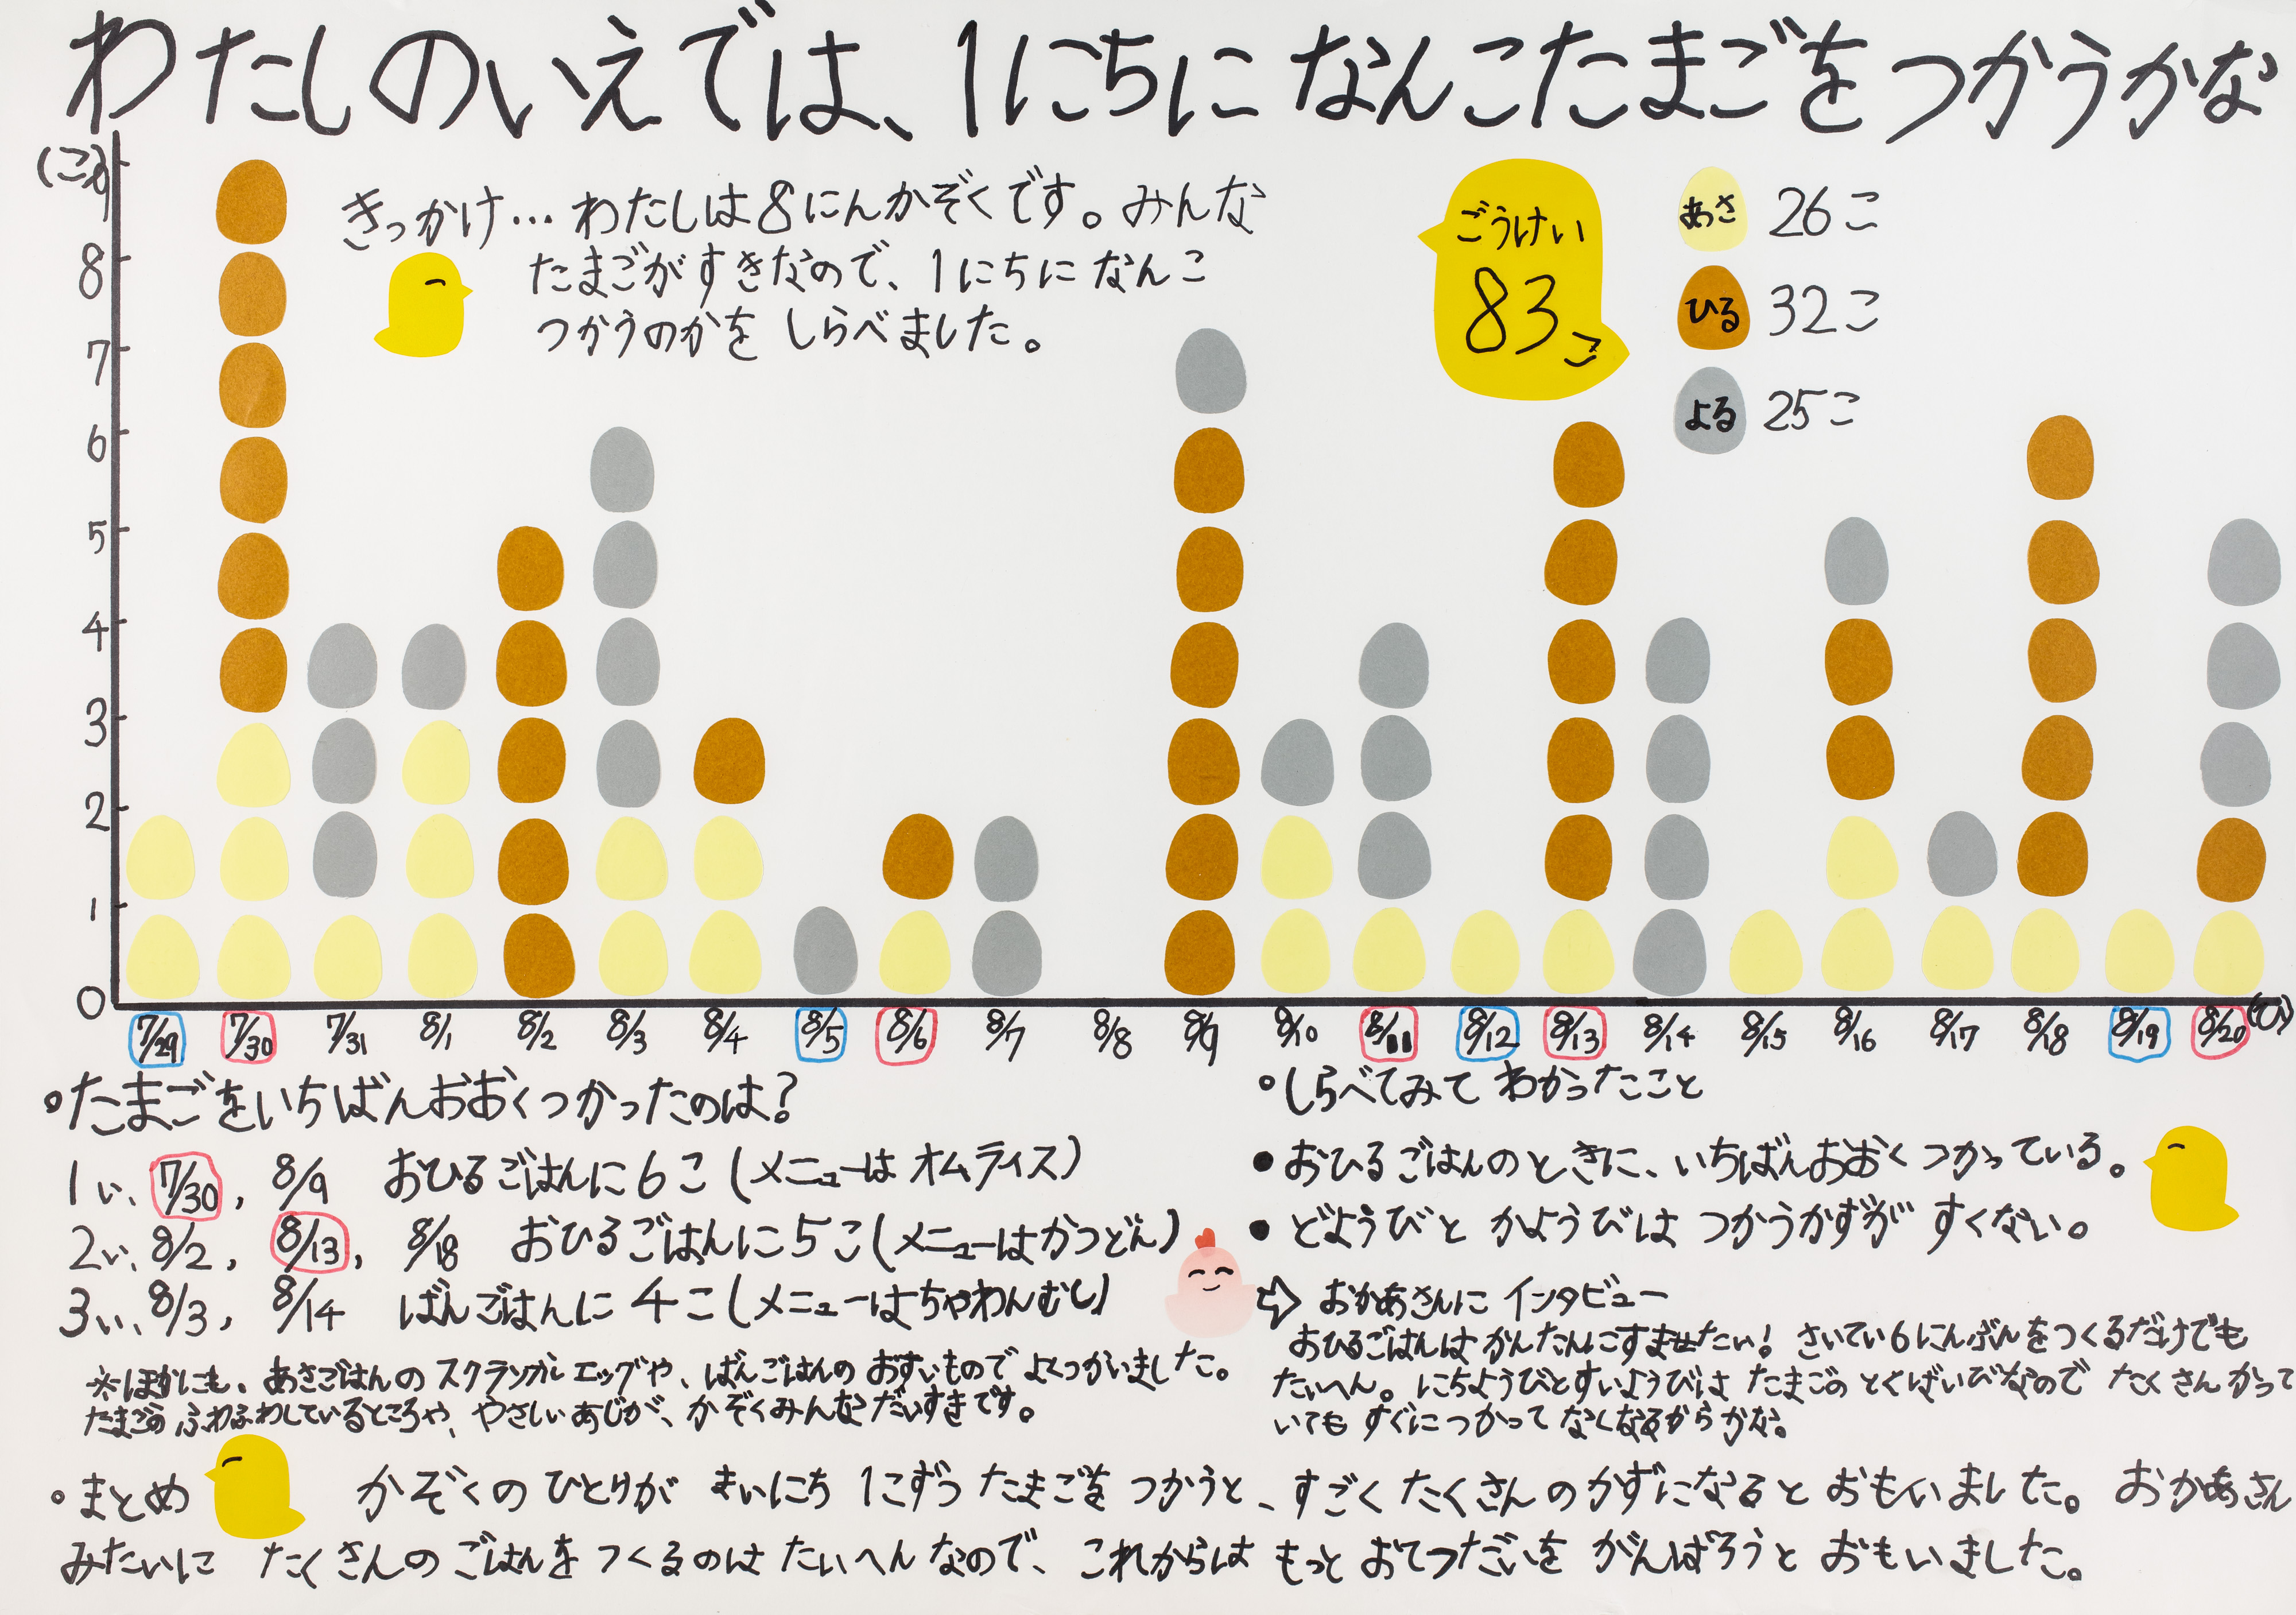 わたしのいえでは、1にちに なんこたまごを つかうかな
(こ)
9
8
7
6
5
4
3
2
1
0
きっかけ…わたしは8にんかぞくです。みんな
たまごがすきなので、1にちに なんこ
つかうのかを しらべました。
ごうけい
83こ
あさ 26こ
ひる 32こ
よる 25こ
7/29 7/30 7/31 8/1 8/2 8/3 8/4 8/5 8/6 8/7 8/8 8/9 8/10 8/11 8/12 8/13 8/14 8/15 8/16 8/17 8/18 8/19 8/20 (ひ)
•たまごをいちばんおおくつかったのは?
1い、7/30, 8/9 おひるごはんに6こ(メニューは オムライス)
2い、8/2, 8/13, 8/18 おひるごはんに5こ(メニューはかつどん)
3い、8/3, 8/14 ばんごはんに 4こ(メニューはちゃわんむし)
※ほかにも、あさごはんの スクランブル エッグや、ばんごはんの おすいもので よくつかいました。
たまごの ふわふわしているところや、やさしい あじが、かぞくみんな だいすきです。
•しらべてみて わかったこと
●おひるごはんのときに、いちばんおおく つかっている。
●どようびと かようびは つかうかずが すくない。
⇨ おかあさんに インタビュー
おひるごはんは かんたんにすませたい! さいてい6にんぶんをつくるだけでも
たいへん。にちようびとすいようびは たまごの とくばいびなので たくさん かって
いても すぐに つかって なくなるからかな。
•まとめ かぞくの ひとりが まいにち 1こずつ たまごを つかうと、すごく たくさんの かずになると おもいました。おかあさん
みたいに たくさんの ごはんを つくるのは たいへん なので、これからは もっと おてつだいを がんばろうと おもいました。